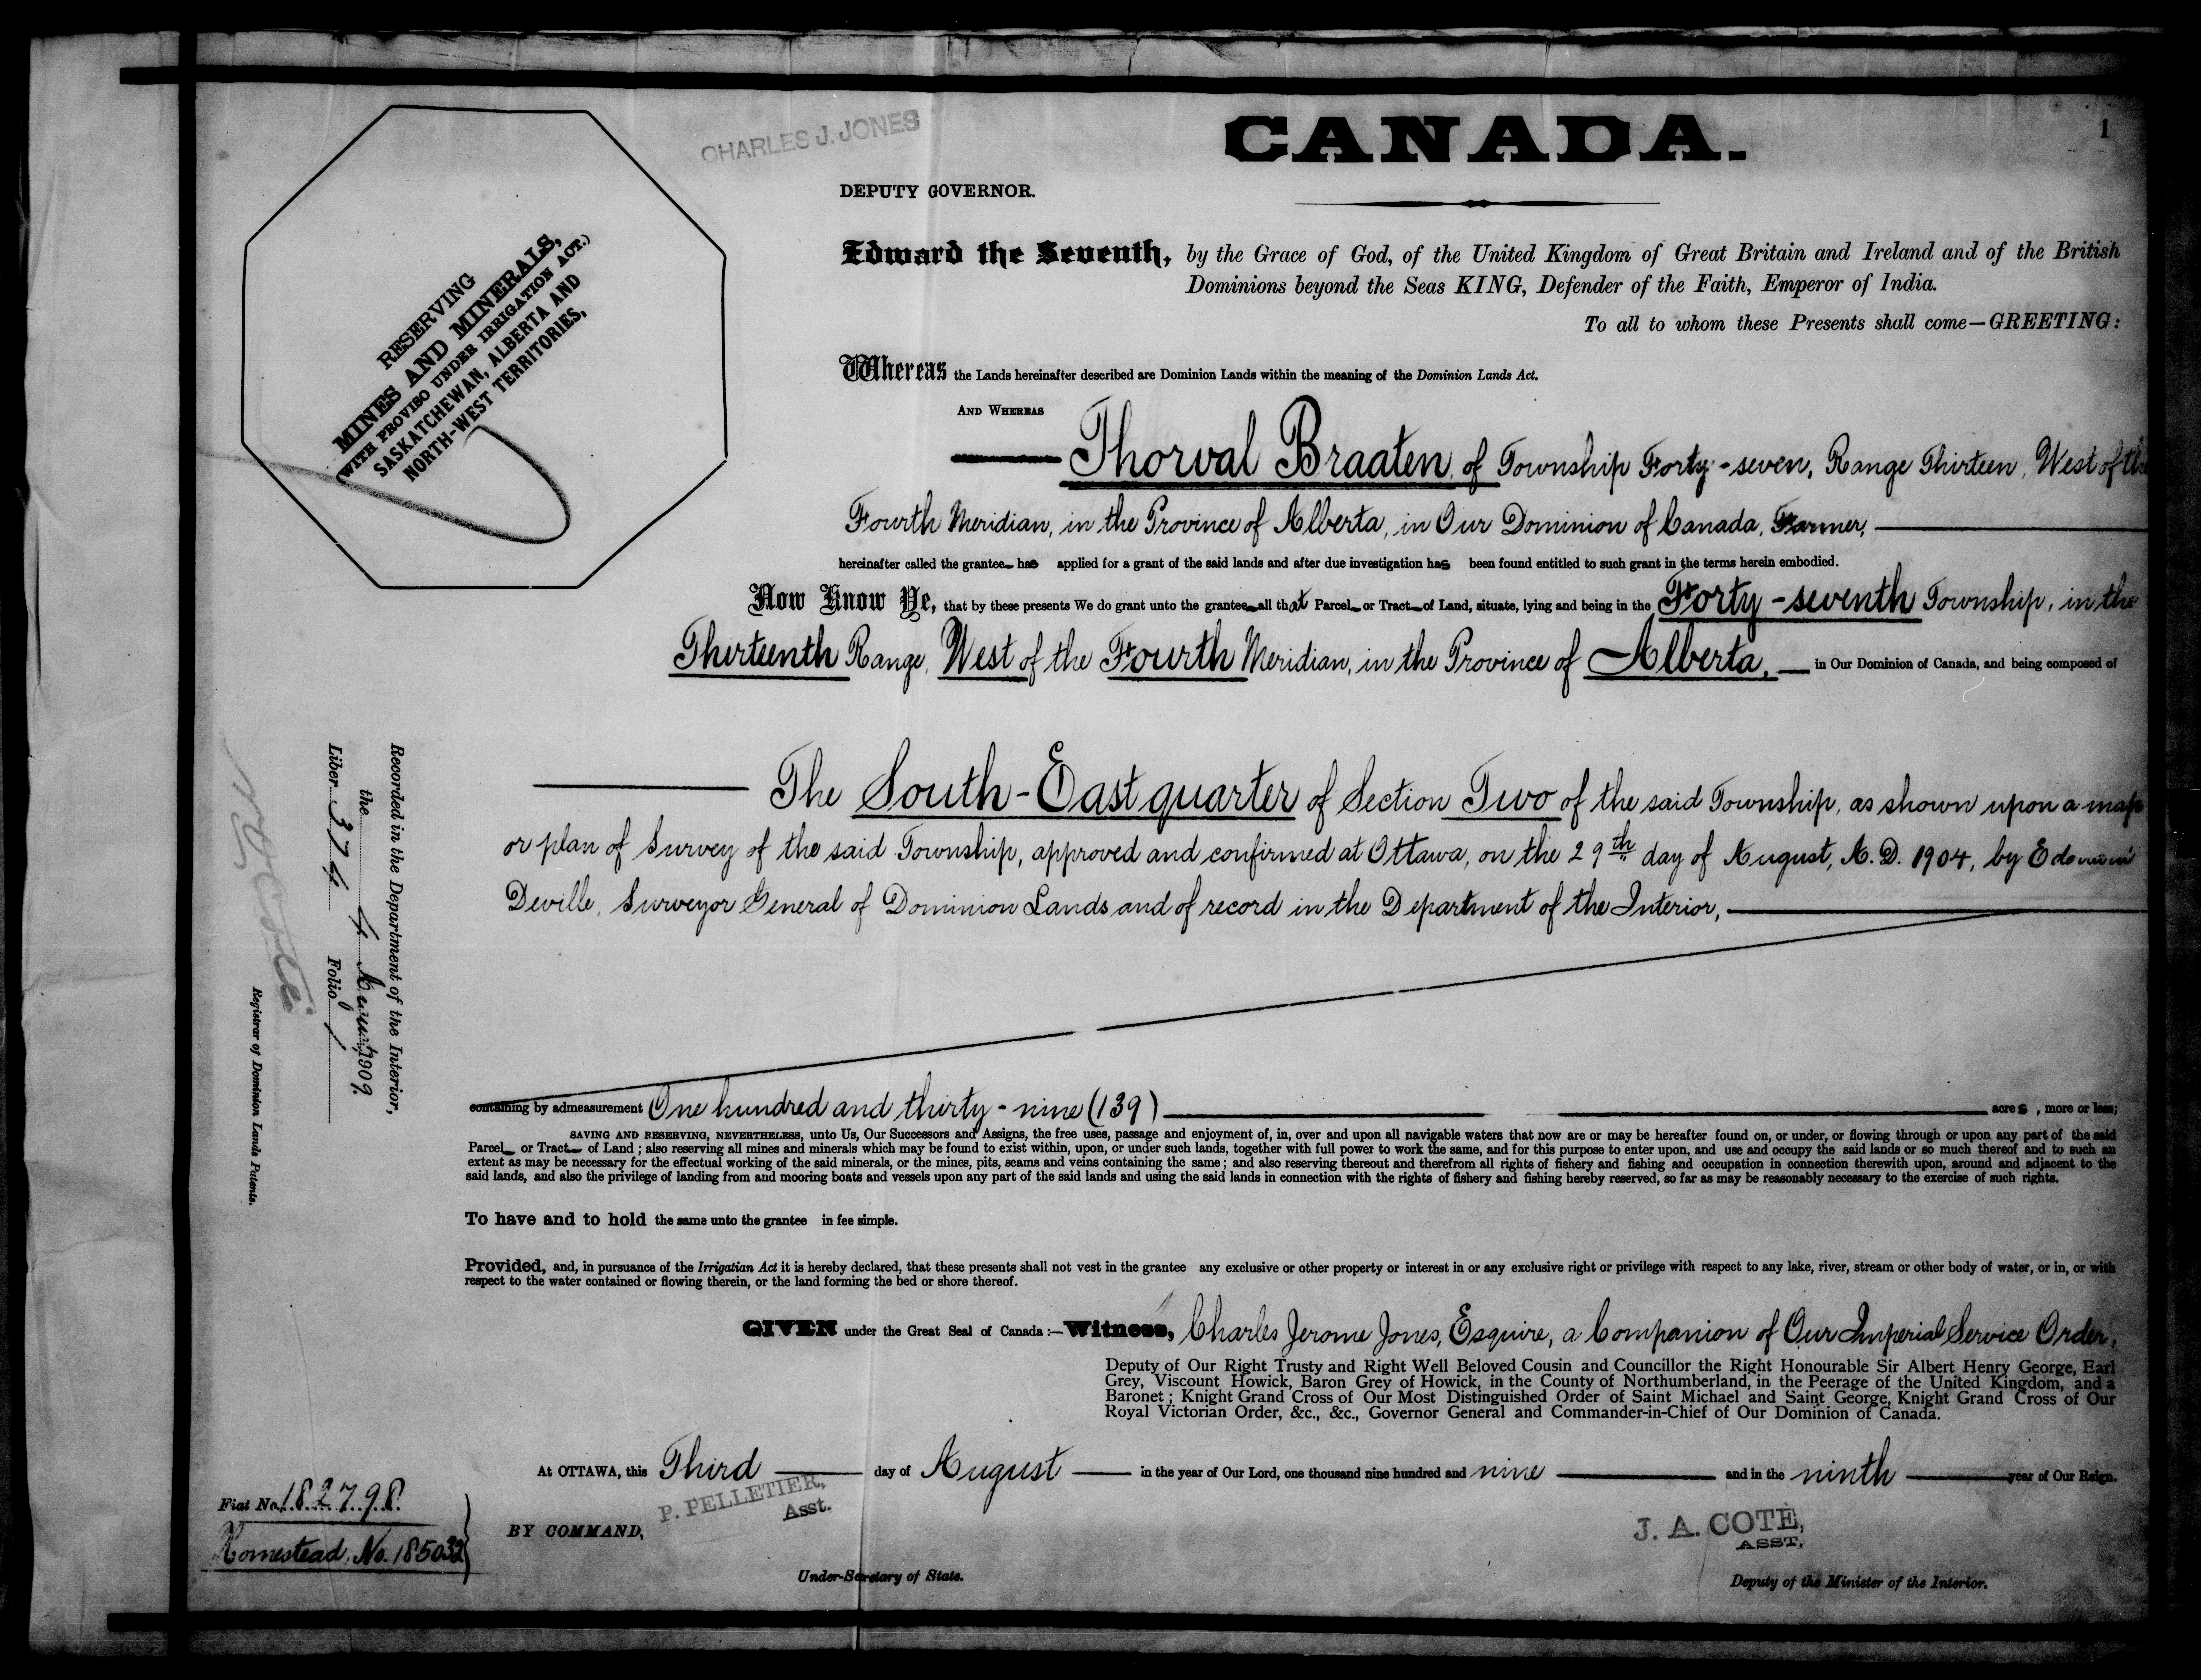 CANADA.
1
CHARLES J. JONES
DEPUTY GOVERNOR.
RESERVING
MINES AND MINERALS,
(WITH PROVISO UNDER IRRIGATION ACT.)
SASKATCHEWAN, ALBERTA AND
NORTH-WEST TERRITORIES,
Edward the Seventh, by the Grace of God, of the United Kingdom of Great Britain and Ireland and of the British
Dominions beyond the Seas KING, Defender of the Faith, Emperor of India.
To all to whom these Presents shall come—GREETING:
Whereas the Lands hereinafter described are Dominion Lands within the meaning of the Dominion Lands Act.
AND WHEREAS
Thorval Braaten, of Township Forty-seven, Range Thirteen, West of the
Fourth Meridian, in the Province of Alberta, in Our Dominion of Canada, Farmer,
hereinafter called the grantee has applied for a grant of the said lands and after due investigation has been found entitled to such grant in the terms herein embodied.
Now Know Ye, that by these presents We do grant unto the grantee all that Parcel or Tract of Land, situate, lying and being in the Forty-seventh Township, in the
Thirteenth Range, West of the Fourth Meridian, in the Province of Alberta, in Our Dominion of Canada, and being composed of
The South-East quarter of Section Two of the said Township, as shown upon a map
or plan of Survey of the said Township, approved and confirmed at Ottawa, on the 29th day of August, A.D. 1904, by
Deville, Surveyor General of Dominion Lands and of record in the Department of the Interior,
containing by admeasurement One hundred and thirty-nine (139) acres, more or less;
SAVING AND RESERVING, NEVERTHELESS, unto Us, Our Successors and Assigns, the free uses, passage and enjoyment of, in, over and upon all navigable waters that now are or may be hereafter found on, or under, or flowing through or upon any part of the said
Parcel or Tract of Land; also reserving all mines and minerals which may be found to exist within, upon, or under such lands, together with full power to work the same, and for this purpose to enter upon, and use and occupy the said lands or so much thereof and to such an
extent as may be necessary for the effectual working of the said minerals, or the mines, pits, seams and veins containing the same; and also reserving thereout and therefrom all rights of fishery and fishing and occupation in connection therewith upon, around and adjacent to the
said lands, and also the privilege of landing from and mooring boats and vessels upon any part of the said lands and using the said lands in connection with the rights of fishery and fishing hereby reserved, so far as may be reasonably necessary to the exercise of such rights.
To have and to hold the same unto the grantee in fee simple.
Provided, and, in pursuance of the Irrigatian Act it is hereby declared, that these presents shall not vest in the grantee any exclusive or other property or interest in or any exclusive right or privilege with respect to any lake, river, stream or other body of water, or in, or with
respect to the water contained or flowing therein, or the land forming the bed or shore thereof.
GIVEN under the Great Seal of Canada:—Witness, Charles Jerome Jones, Esquire, a Companion of Our Imperial Service Order,
Deputy of Our Right Trusty and Right Well Beloved Cousin and Councillor the Right Honourable Sir Albert Henry George, Earl
Grey, Viscount Howick, Baron Grey of Howick, in the County of Northumberland, in the Peerage of the United Kingdom, and a
Baronet; Knight Grand Cross of Our Most Distinguished Order of Saint Michael and Saint George, Knight Grand Cross of Our
Royal Victorian Order, &c., &c., Governor General and Commander-in-Chief of Our Dominion of Canada.
At OTTAWA, this Third day of August in the year of Our Lord, one thousand nine hundred and nine and in the ninth year of Our Reign.
P. PELLETIER,
Asst.
BY COMMAND,
Under-Secretary of State.
J. A. COTE,
ASST.
Deputy of the Minister of the Interior.
Recorded in the Department of the Interior,
the 4 August 1909.
Liber 374 Folio 1
Registrar of Dominion Lands Patents.
Fiat No. 182798
Homestead. No. 185032